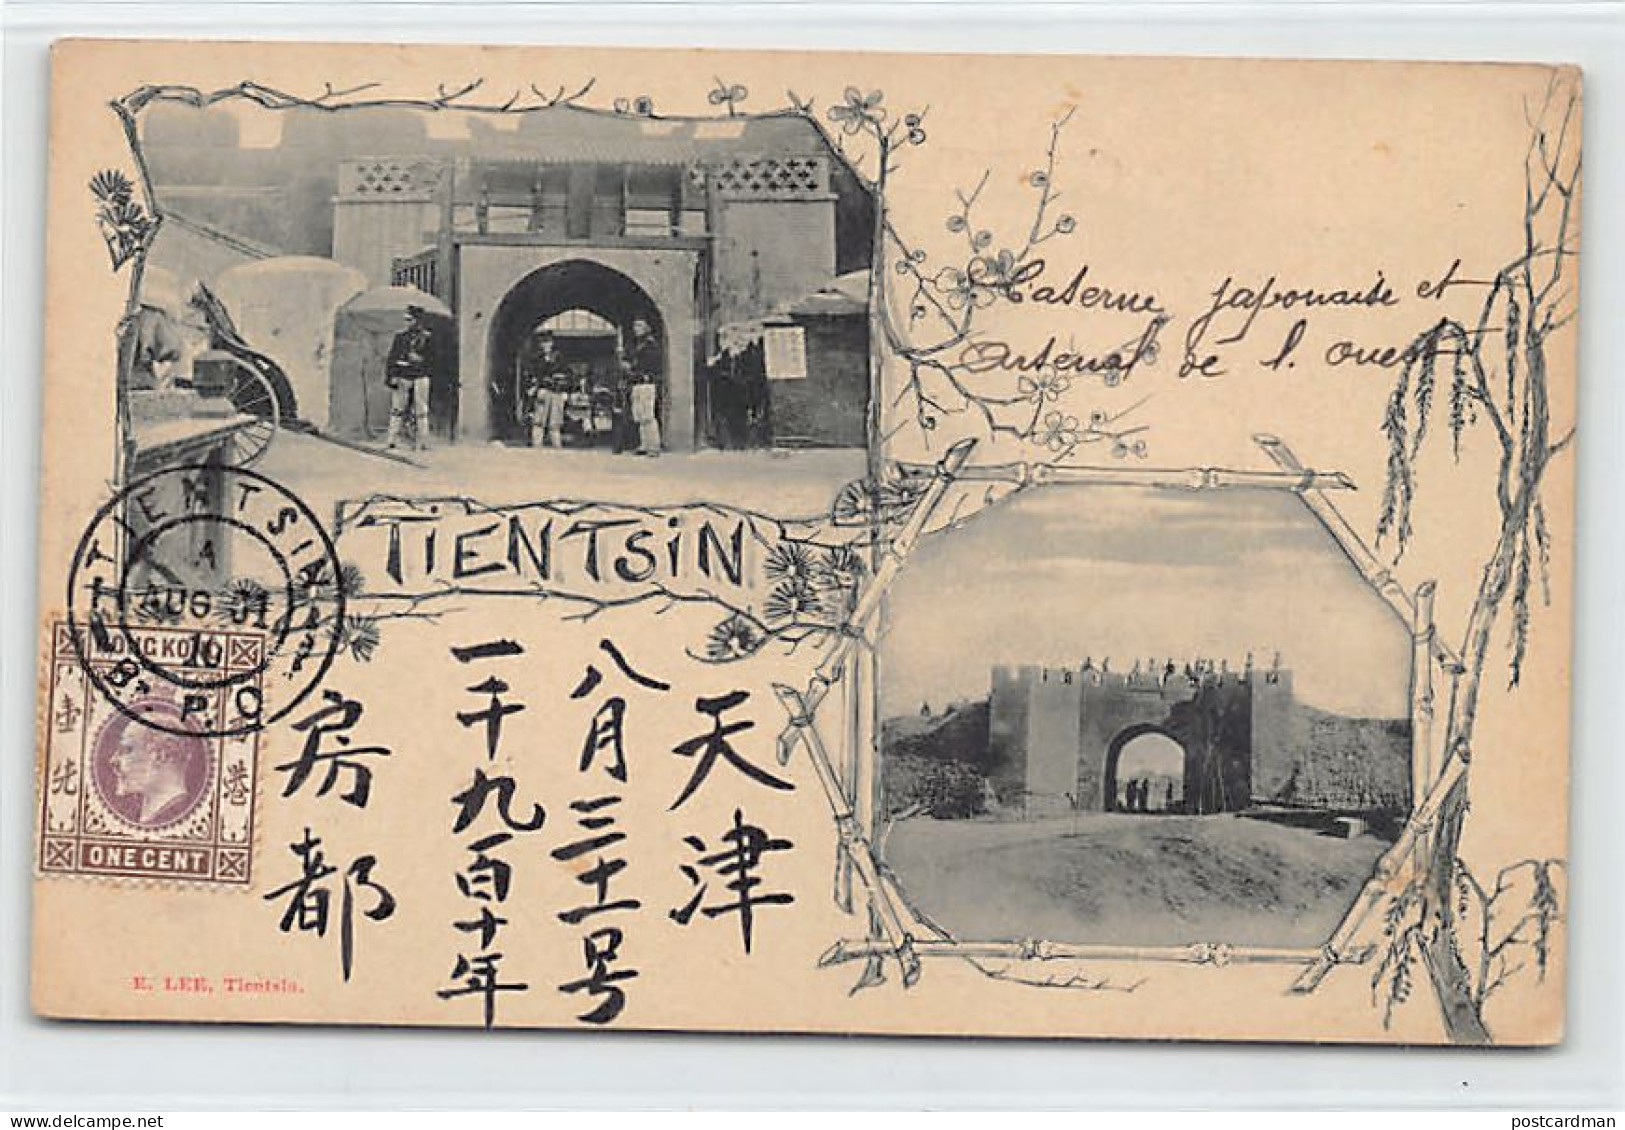 Caserne japonaise et
Arsenal de l. ouest
TiENTSiN
TIENTSIN
A
AUG 31
10
Br. P.O.
HONG KONG
壹
先
港
ONE CENT
天津
八月三十一号
一千九百十年
房都
E. LEE, Tientsin.
postcardman